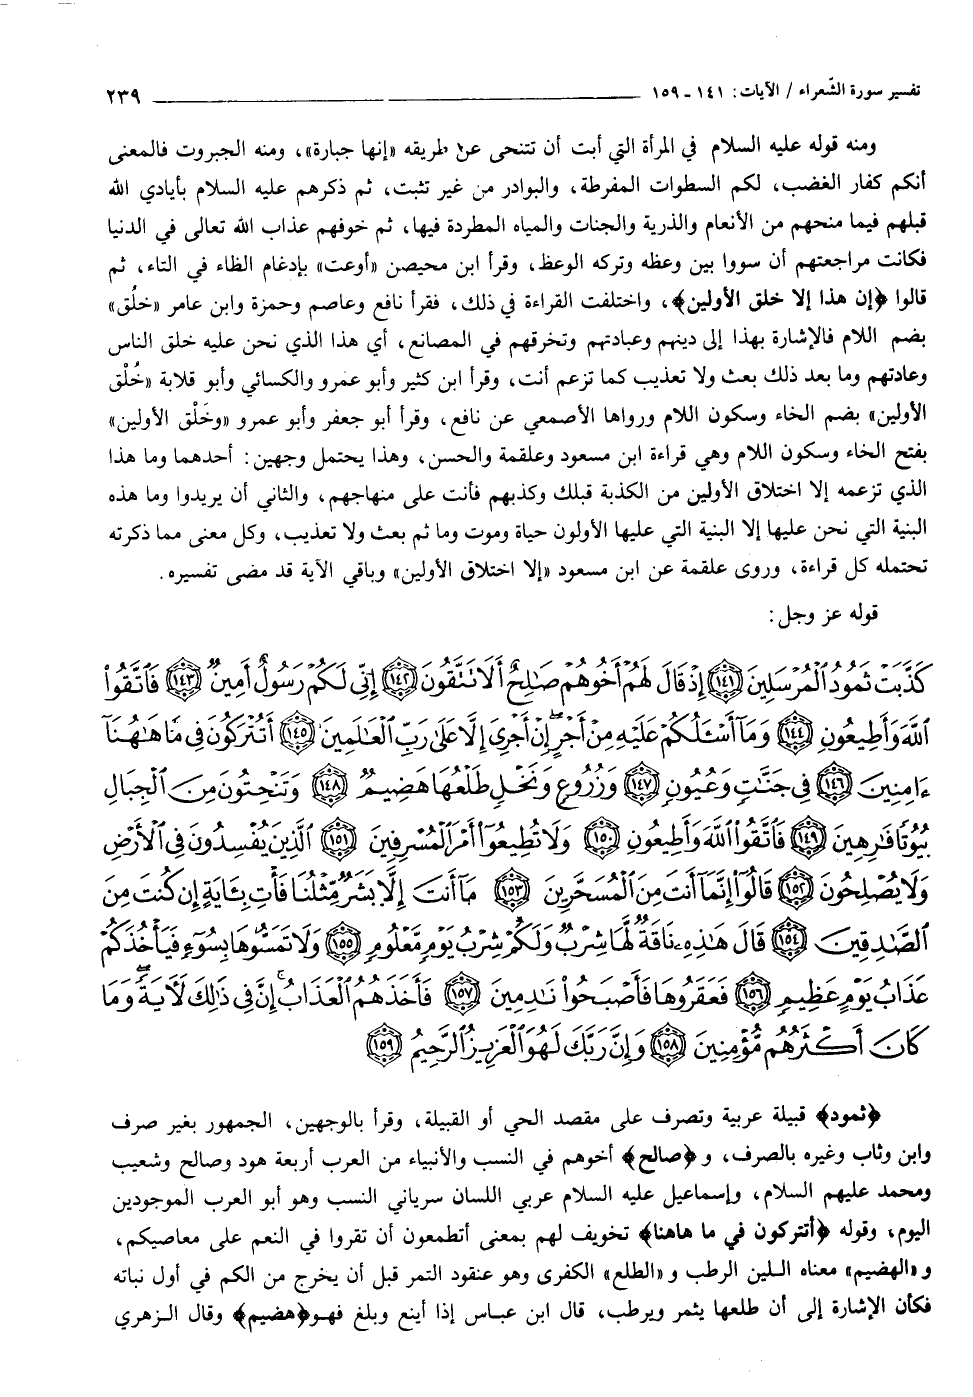 تفسير سورة الشّعراء / الآيات: ١٤١ - ١٥٩ ٢٣٩
ومنه قوله عليه السلام في المرأة التي أبت أن تتنحى عن طريقه «إنها جبارة»، ومنه الجبروت فالمعنى
أنكم كفار الغضب، لكم السطوات المفرطة، والبوادر من غير تثبت، ثم ذكرهم عليه السلام بأيادي الله
قبلهم فيما منحهم من الأنعام والذرية والجنات والمياه المطردة فيها، ثم خوفهم عذاب الله تعالى في الدنيا
فكانت مراجعتهم أن سووا بين وعظه وتركه الوعظ، وقرأ ابن محيصن «أوعت» بإدغام الظاء في التاء، ثم
قالوا ﴿إن هذا إلا خلق الأولين﴾، واختلفت القراءة في ذلك، فقرأ نافع وعاصم وحمزة وابن عامر «خلُق»
بضم اللام فالإشارة بهذا إلى دينهم وعبادتهم وتخرقهم في المصانع، أي هذا الذي نحن عليه خلق الناس
وعادتهم وما بعد ذلك بعث ولا تعذيب كما تزعم أنت، وقرأ ابن كثير وأبو عمرو والكسائي وأبو قلابة «خُلْق
الأولين» بضم الخاء وسكون اللام ورواها الأصمعي عن نافع، وقرأ أبو جعفر وأبو عمرو «وخَلْق الأولين»
بفتح الخاء وسكون اللام وهي قراءة ابن مسعود وعلقمة والحسن، وهذا يحتمل وجهين: أحدهما وما هذا
الذي تزعمه إلا اختلاق الأولين من الكذبة قبلك وكذبهم فأنت على منهاجهم، والثاني أن يريدوا وما هذه
البنية التي نحن عليها إلا البنية التي عليها الأولون حياة وموت وما ثم بعث ولا تعذيب، وكل معنى مما ذكرته
تحتمله كل قراءة، وروى علقمة عن ابن مسعود «إلا اختلاق الأولين» وباقي الآية قد مضى تفسيره.
قوله عز وجل:
كَذَّبَتْ ثَمُودُ ٱلْمُرْسَلِينَ ﴿١٤١﴾ إِذْ قَالَ لَهُمْ أَخُوهُمْ صَٰلِحٌ أَلَا تَتَّقُونَ ﴿١٤٢﴾ إِنِّي لَكُمْ رَسُولٌ أَمِينٌ ﴿١٤٣﴾ فَٱتَّقُوا۟
ٱللَّهَ وَأَطِيعُونِ ﴿١٤٤﴾ وَمَآ أَسْـَٔلُكُمْ عَلَيْهِ مِنْ أَجْرٍ إِنْ أَجْرِيَ إِلَّا عَلَىٰ رَبِّ ٱلْعَٰلَمِينَ ﴿١٤٥﴾ أَتُتْرَكُونَ فِي مَا هَٰهُنَآ
ءَامِنِينَ ﴿١٤٦﴾ فِي جَنَّٰتٍ وَعُيُونٍ ﴿١٤٧﴾ وَزُرُوعٍ وَنَخْلٍ طَلْعُهَا هَضِيمٌ ﴿١٤٨﴾ وَتَنْحِتُونَ مِنَ ٱلْجِبَالِ
بُيُوتًا فَٰرِهِينَ ﴿١٤٩﴾ فَٱتَّقُوا۟ ٱللَّهَ وَأَطِيعُونِ ﴿١٥٠﴾ وَلَا تُطِيعُوٓا۟ أَمْرَ ٱلْمُسْرِفِينَ ﴿١٥١﴾ ٱلَّذِينَ يُفْسِدُونَ فِي ٱلْأَرْضِ
وَلَا يُصْلِحُونَ ﴿١٥٢﴾ قَالُوٓا۟ إِنَّمَآ أَنتَ مِنَ ٱلْمُسَحَّرِينَ ﴿١٥٣﴾ مَآ أَنتَ إِلَّا بَشَرٌ مِّثْلُنَا فَأْتِ بِـَٔايَةٍ إِن كُنتَ مِنَ
ٱلصَّٰدِقِينَ ﴿١٥٤﴾ قَالَ هَٰذِهِۦ نَاقَةٌ لَّهَا شِرْبٌ وَلَكُمْ شِرْبُ يَوْمٍ مَّعْلُومٍ ﴿١٥٥﴾ وَلَا تَمَسُّوهَا بِسُوٓءٍ فَيَأْخُذَكُمْ
عَذَابُ يَوْمٍ عَظِيمٍ ﴿١٥٦﴾ فَعَقَرُوهَا فَأَصْبَحُوا۟ نَٰدِمِينَ ﴿١٥٧﴾ فَأَخَذَهُمُ ٱلْعَذَابُ إِنَّ فِي ذَٰلِكَ لَآيَةً وَمَا
كَانَ أَكْثَرُهُم مُّؤْمِنِينَ ﴿١٥٨﴾ وَإِنَّ رَبَّكَ لَهُوَ ٱلْعَزِيزُ ٱلرَّحِيمُ ﴿١٥٩﴾
﴿ثمود﴾ قبيلة عربية وتصرف على مقصد الحي أو القبيلة، وقرأ بالوجهين، الجمهور بغير صرف
وابن وثاب وغيره بالصرف، و﴿صالح﴾ أخوهم في النسب والأنبياء من العرب أربعة هود وصالح وشعيب
ومحمد عليهم السلام، وإسماعيل عليه السلام عربي اللسان سرياني النسب وهو أبو العرب الموجودين
اليوم، وقوله ﴿أتتركون في ما هاهنا﴾ تخويف لهم بمعنى أتطمعون أن تقروا في النعم على معاصيكم،
و«الهضيم» معناه اللين الرطب و«الطلع» الكفرى وهو عنقود التمر قبل أن يخرج من الكم في أول نباته
فكأن الإشارة إلى أن طلعها يثمر ويرطب، قال ابن عباس إذا أينع وبلغ فهو﴿هضيم﴾ وقال الزهري